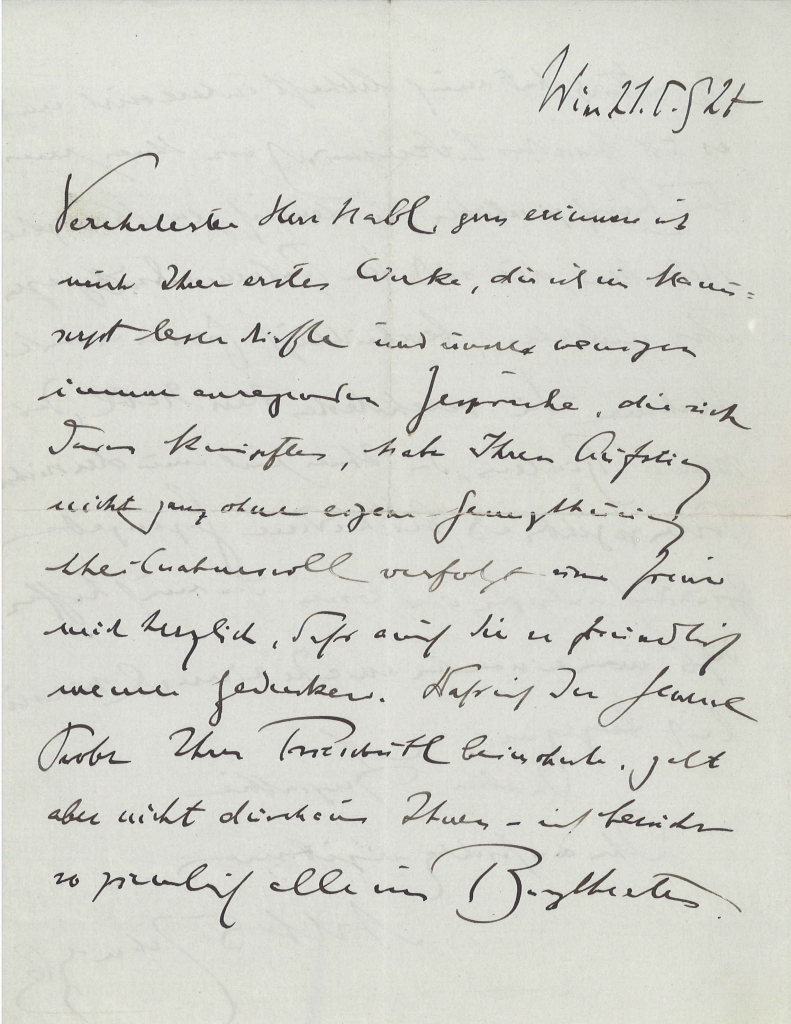 Wien 21. 5. 924
Verehrtester Herr Nabl, gern erinnere ich
mich Ihrer ersten Werke, die ich im Manu=
script lesen durfte und unsrer wenigen
immer anregenden Gespräche, die sich
daran knüpften, habe Ihren Aufstieg
nicht ganz ohne eigene Genugthuung
theilnahmsvoll verfolgt und freue
mich herzlich, daß auch Sie so freundlich
meiner gedenken. Daß ich der General
Probe Ihrer beiwohnte, galt
aber nicht durchaus Ihnen – ich besuche
so ziemlich alle im Burgtheater.